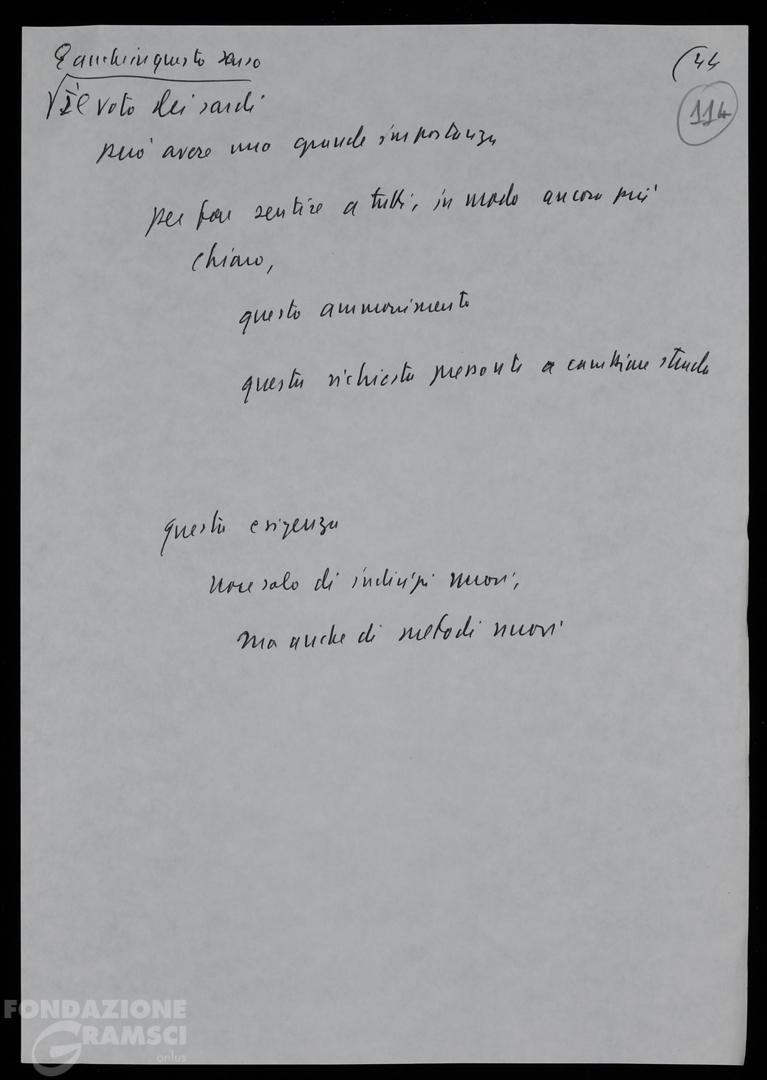 E anche in questo senso
(44
114
Il voto dei sardi
può avere una grande importanza
per fare sentire a tutti, in modo ancora più
chiaro,
questo ammonimento
questa richiesta pressante a cambiare strada
questa esigenza
non solo di indirizzi nuovi,
ma anche di metodi nuovi
FONDAZIONE
GRAMSCI
onlus